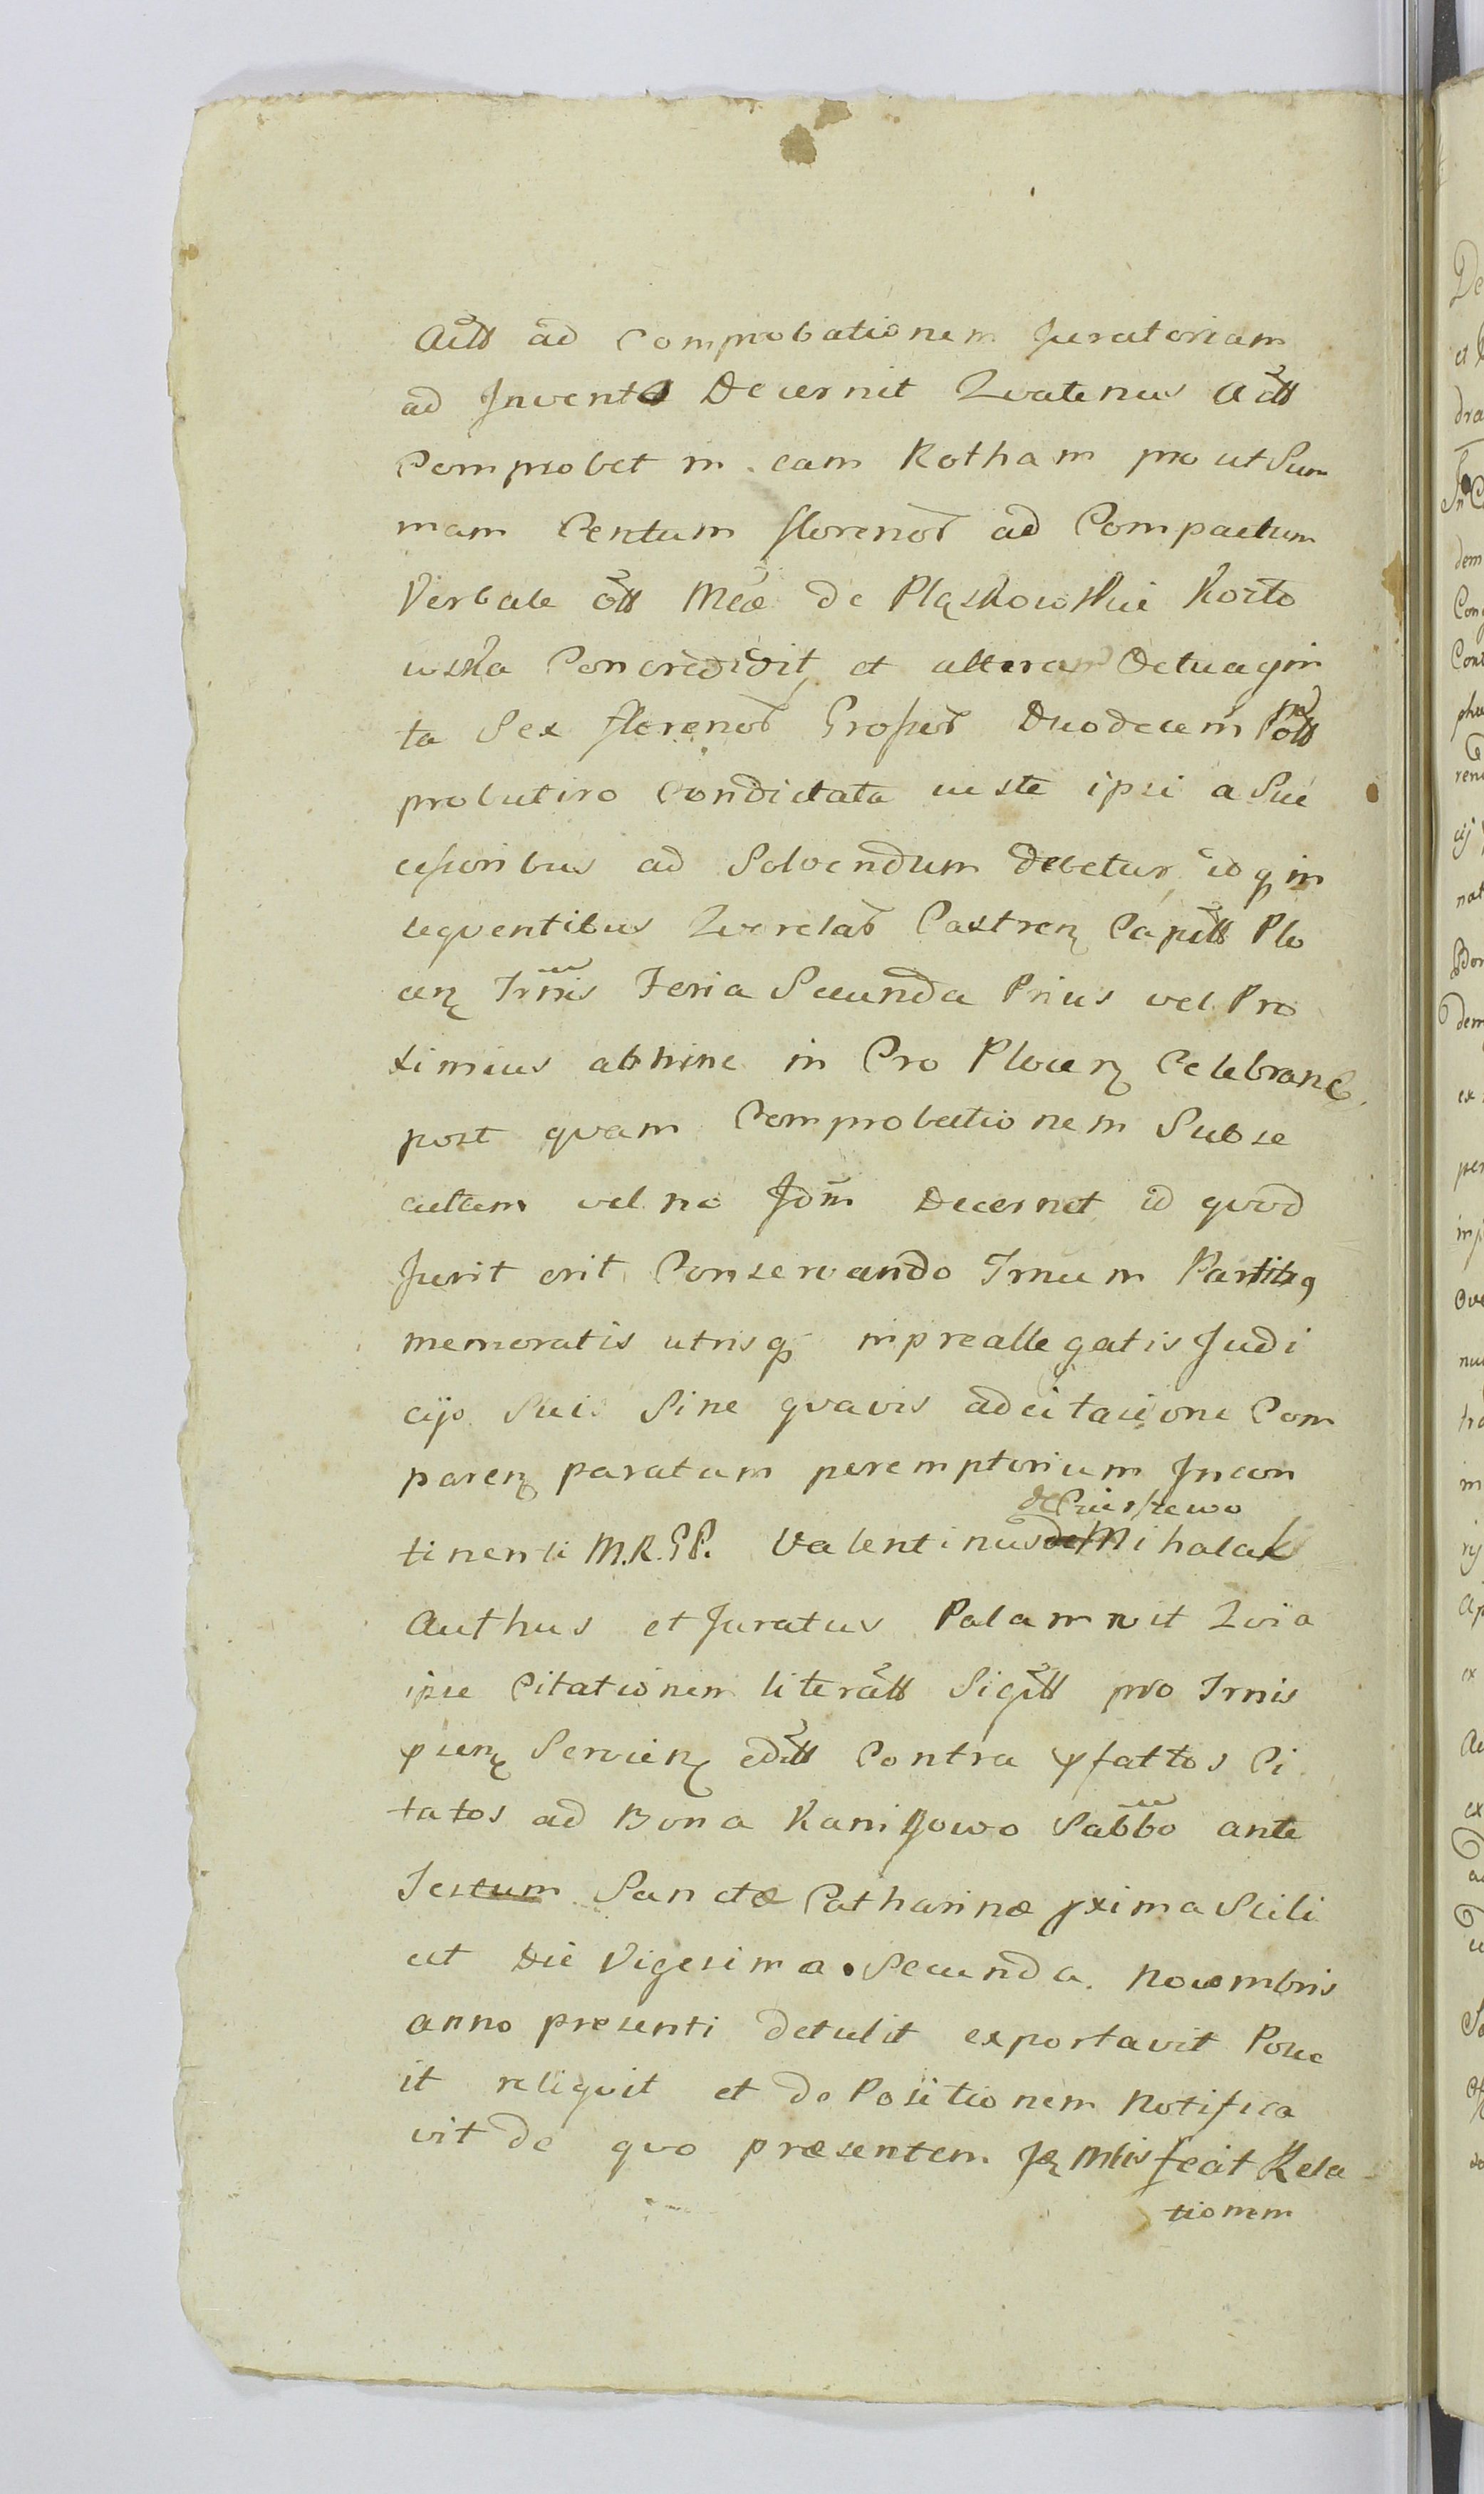 Actt ad Comprobationem Juratoriam
ad Inventa Decernit Quatenus Actt
Comprobet in eam Rotham pro ut Sum
mam Centum florenor ad Compactum
Verbale ott Mcæ de Pląskowskie Kosto
wska Concredidit, et alteram Octuagin
ta Sex florenor Grossor Duodecem Poltt
probutiro Condictata iuste ipsi a Suc
cessoribus ad Solvendum debetur, idq in
sequentibus Querelar Castren Capittt Plo
cen Trmis Feria Secunda Prius vel Pro
ximius abhinc in Cro Plocen Celebran
post quam Comprobationem Subse
cutam vel no Jdm Decernet id quod
Jurit erit Conservando Trnum Partibq
memoratis utrisq in preallegatis Judi
cijs Suis Sine quavis adcitatione Com
paren paratum peremptorium Incon
tinenti M.R.GP. Valentinus de Mihalak
Authus et Juratus Palam rvit Quia
ipse Citationem literatt Sigitt pro Trnis
pien Servien editt Contra pfattos Ci
tatos ad Bona Kanigowo Sabbo ante
Festum Sanctæ Catharinæ pxima Scili
cet Die Vigesima Secunda Novembris
anno presenti detulit exportavit Posu
it reliquit et de Positionem Notifica
vit de quo præsentem fecit Rela
tionem